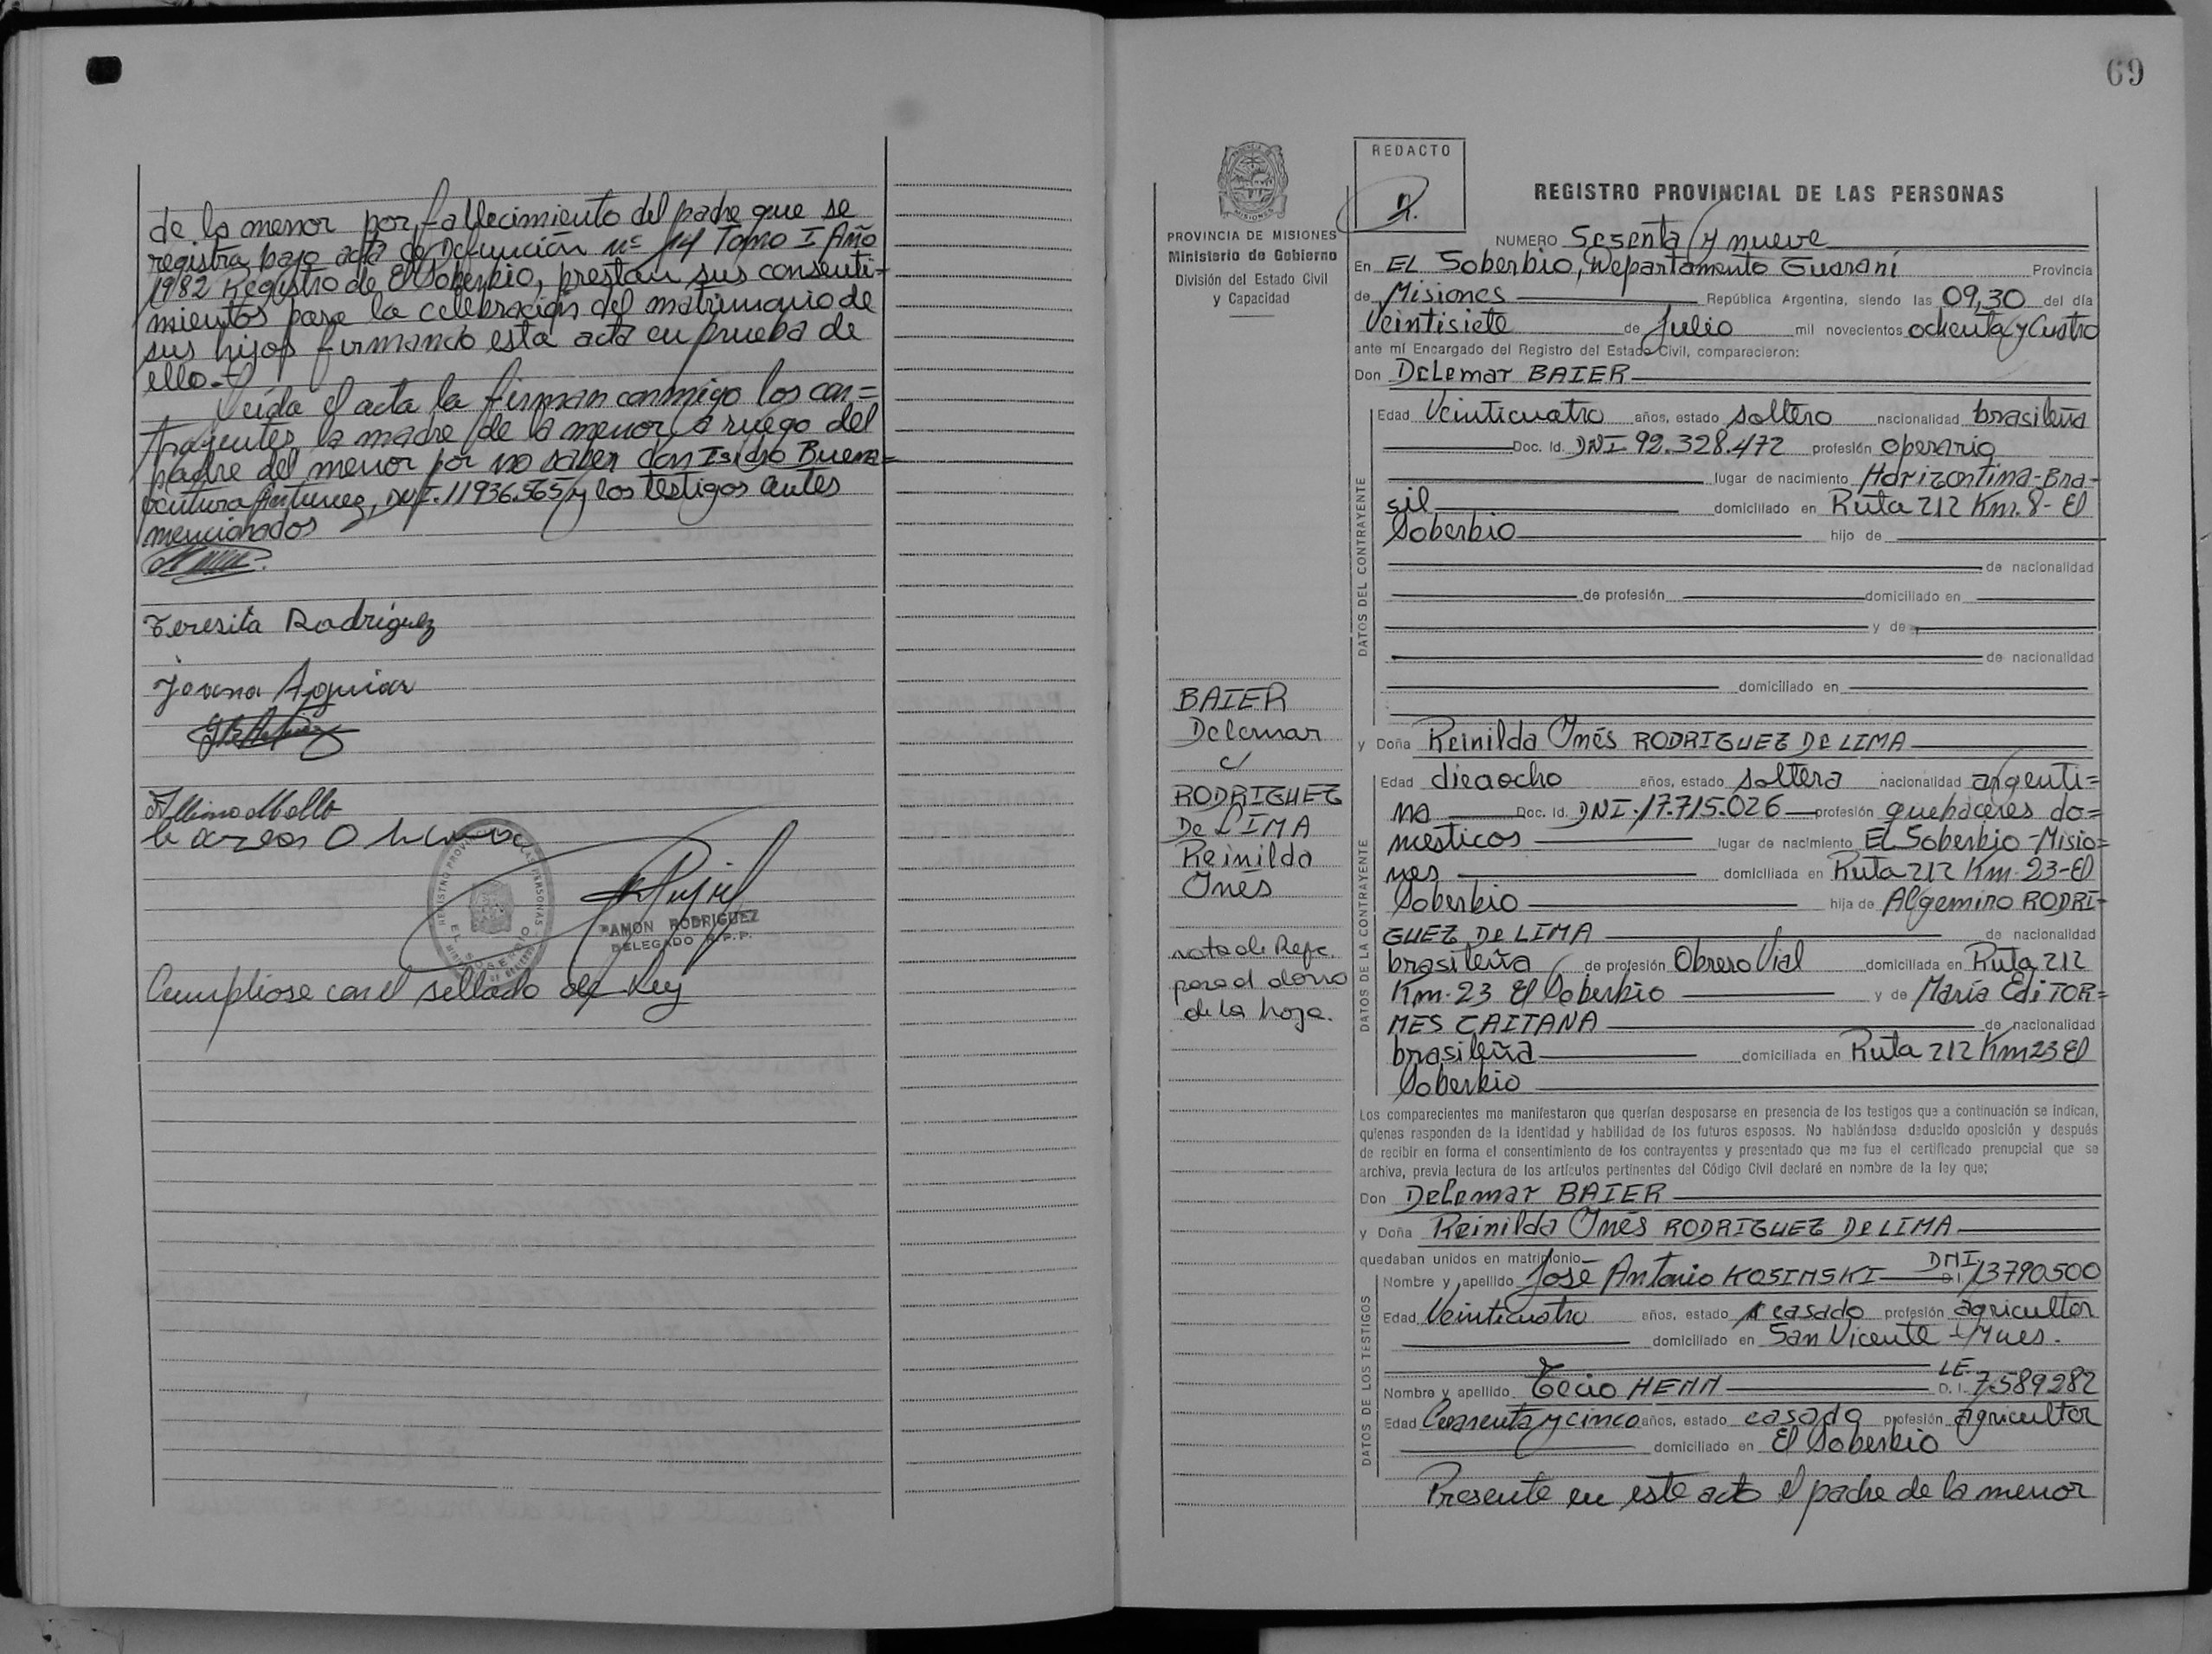 de la menor por fallecimiento del padre que se
registra bajo acta de Defunción nº 14 Tomo I Año
1982 Registro de El Soberbio, prestan sus consenti=
mientos para la celebración del matrimonio de
sus hijos firmando esta acta en prueba de
ello.-
Leída el acta la firman conmigo los con=
trayentes, la madre de la menor, a ruego del
padre del menor por no saber don Isidro Buena=
ventura Antunez, DNI. 11936.565 y los testigos antes
mencionados
Teresita Rodriguez
Jovena Aguiar
REGISTRO PROVINCIAL DE LAS PERSONAS
EL SOBERBIO
RAMON RODRIGUEZ
DELEGADO R.P.P.
Cumpliose con el sellado de Ley
69
PROVINCIA DE MISIONES
Ministerio de Gobierno
División del Estado Civil
y Capacidad
BAIER
Delemar
c/
RODRIGUEZ
De LIMA
Reinilda
Inés
nota de Refe.
para al dorso
de la hoja.
REDACTO
REGISTRO PROVINCIAL DE LAS PERSONAS
NUMERO Sesenta y nueve
En EL Soberbio, Departamento Guaraní Provincia
de Misiones República Argentina, siendo las 09,30 del día
Veintisiete de Julio mil novecientos ochenta y Cuatro
ante mí Encargado del Registro del Estado Civil, comparecieron:
Don DeLemar BAIER
DATOS DEL CONTRAYENTE
Edad Veinticuatro años, estado soltero nacionalidad brasileña
Doc. Id. DNI 92.328.472 profesión operario
lugar de nacimiento Horizontina-Bra-
sil domiciliado en Ruta 212 Km. 8- El
Soberbio hijo de
de nacionalidad
de profesión domiciliado en
y de
de nacionalidad
domiciliado en
y Doña Reinilda Inés RODRIGUEZ De LIMA
DATOS DE LA CONTRAYENTE
Edad dieciocho años, estado soltera nacionalidad argenti=
na Doc. Id. DNI. 17.715.026 profesión quehaceres do=
mesticos lugar de nacimiento EL Soberbio-Misio=
nes domiciliada en Ruta 212 Km. 23-El
Soberbio hija de Algemiro RODRI-
GUEZ De LIMA de nacionalidad
brasileña de profesión Obrero Vial domiciliada en Ruta 212
Km. 23 El Soberbio y de María Edi TOR=
MES CAITANA de nacionalidad
brasileña domiciliada en Ruta 212 Km 23 El
Soberbio
Los comparecientes me manifestaron que querían desposarse en presencia de los testigos que a continuación se indican,
quienes responden de la identidad y habilidad de los futuros esposos. No habiéndose deducido oposición y después
de recibir en forma el consentimiento de los contrayentes y presentado que me fue el certificado prenupcial que se
archiva, previa lectura de los artículos pertinentes del Código Civil declaré en nombre de la ley que;
Don DeLemar BAIER
y Doña Reinilda Inés RODRIGUEZ De LIMA
quedaban unidos en matrimonio
DATOS DE LOS TESTIGOS
Nombre y apellido José Antonio KOSINSKI DNI D.I. 13790.500
Edad Veinticuatro años, estado casado profesión agricultor
domiciliado en San Vicente - Mnes.
Nombre y apellido Tecio HENN LE. D.I. 7.589282
Edad Cuarenta y cinco años, estado casado profesión agricultor
domiciliado en El Soberbio
Presente en este acto el padre de la menor